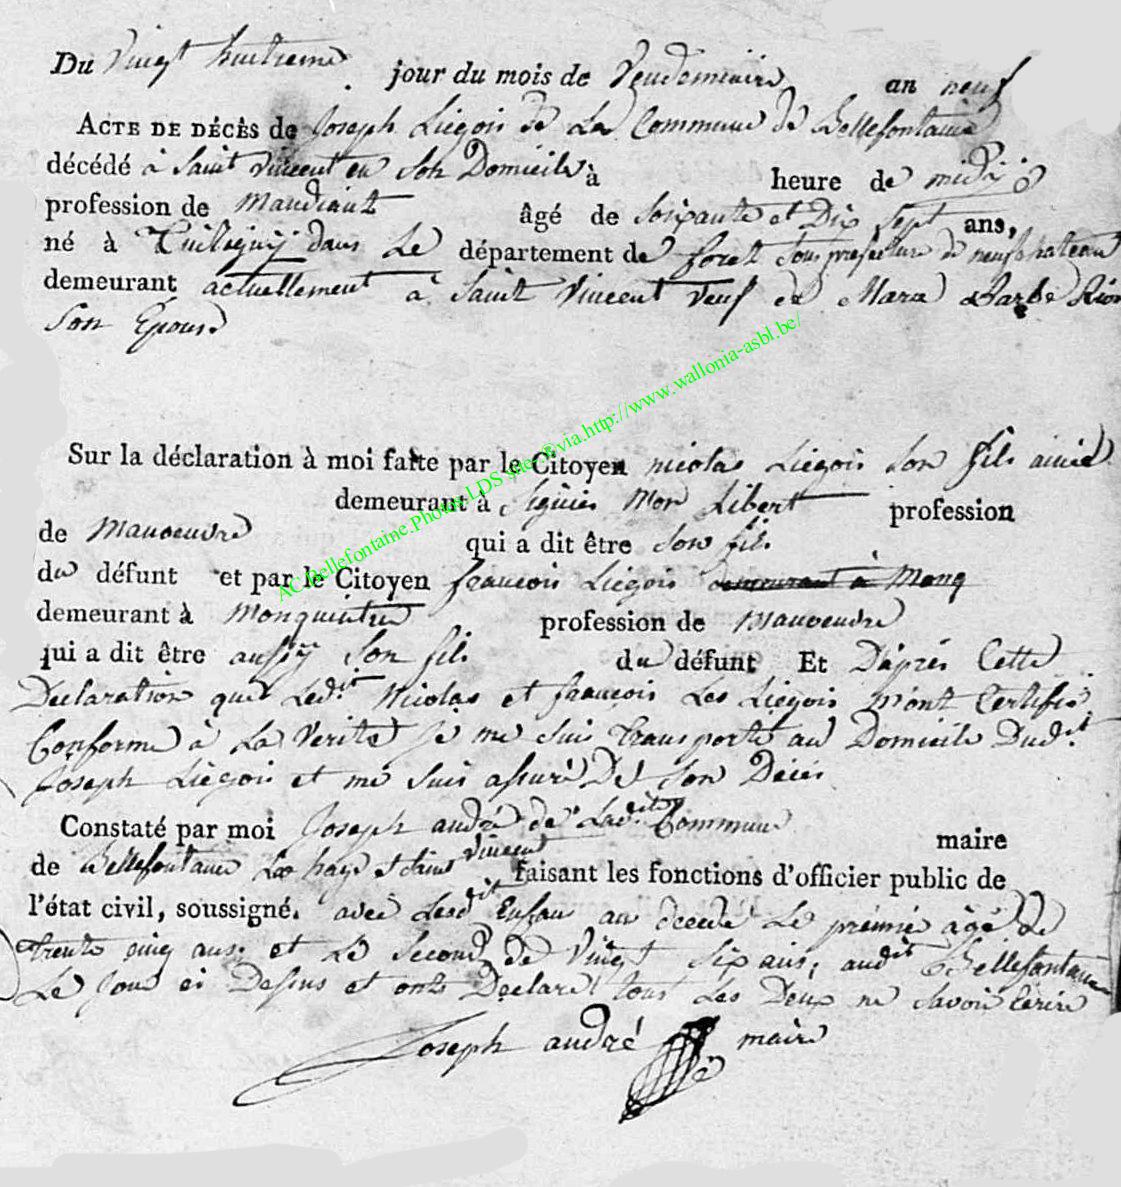 Du Vingt huitieme jour du mois de Vendemiaire an neuf
ACTE DE DÉCÈS de Joseph Liégois de La Commune de Bellefontaine
décédé à Saint Vincent en Son Domicile à heure de midÿ
profession de Mandiant âgé de Soixante et Dix Sept ans,
né à dans Le département de foret Sous prefecture de neufchateau
demeurant actuellement à Saint Vincent Veuf de Marie Barbe
Son Epouse
Sur la déclaration à moi faite par le Citoyen nicolas Liégois Son fils ainé
demeurant à Mon Libert profession
de Manoeuvre qui a dit être Son fils
du défunt et par le Citoyen francois Liégois demeurant à Monq
demeurant à Monquintin profession de Manoeuvre
qui a dit être aussÿ Son fils du défunt Et D'aprés Cette
Declaration que Ledit Nicolas et françois Les Liégois m'ont Certifié
Conforme à La Verité Je me Suis Transporté au Domicile Dudit
Joseph Liégois et me Suis assuré De Son Décés
Constaté par moi Joseph andré de Ladit Commune maire
de Bellefontaine La haye et Saint Vincent faisant les fonctions d'officier public de
l'état civil, soussigné. avec Lesdit Enfan au decede Le premié àgé de
Trente cinq ans et Le Second de Vingt Six ans, audit Bellefontaine
Le Jour ci Dessus et onts Declaré tous Les Deux ne Savoir Ecrire
Joseph andré maire
AC.Bellefontaine.Photos LDS site ©via.http://www.wallonia-asbl.be/